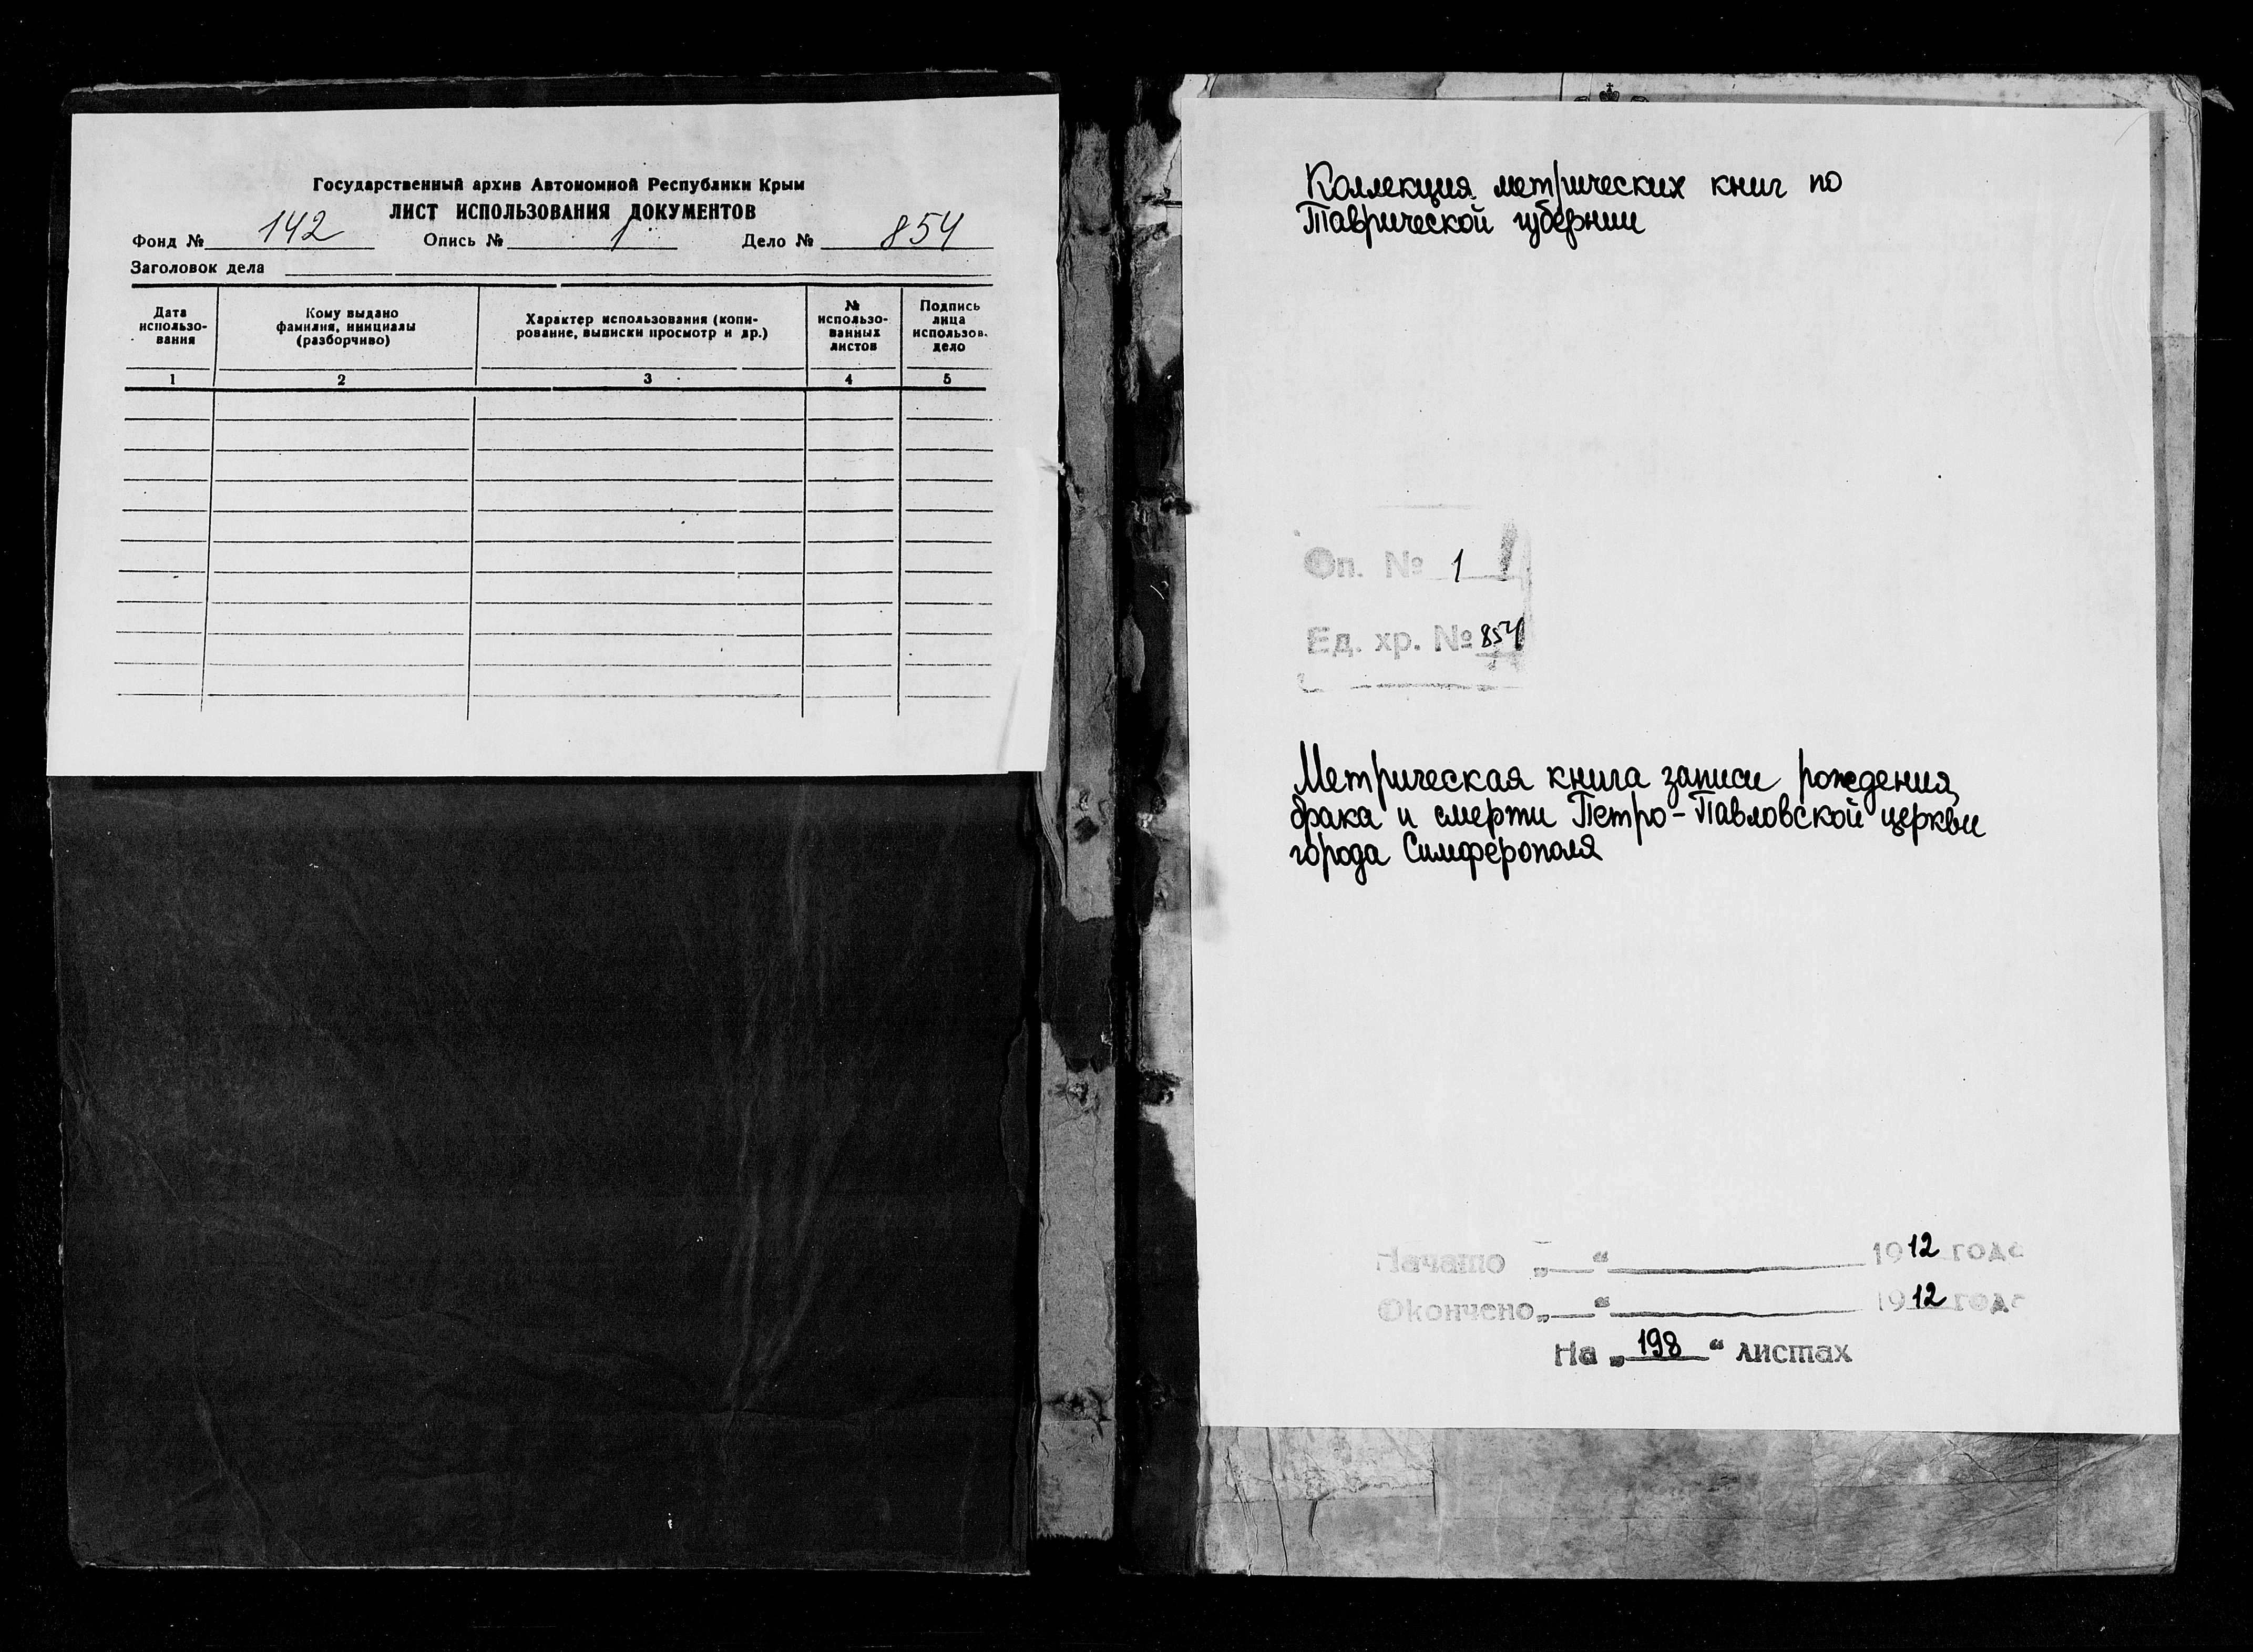 Государственный архив Автономной Республики Крым
ЛИСТ ИСПОЛЬЗОВАНИЯ ДОКУМЕНТОВ
Фонд № 142 Опись № 1 Дело № 854
Заголовок дела
Дата использо-вания
Кому выдано фамилия, инициалы (разборчиво)
Характер использования (копи-рование, выписки просмотр и др.)
№ использо-ванных листов
Подпись лица использов. дело
1 2 3 4 5
Коллекция метрических книг по
Таврической губернии
Оп. № 1
Ед. хр. № 854
Метрическая книга записи рождения,
брака и смерти Петро-Павловской церкви
города Симферополя
Начато „ “ 1912 года
Окончено „ “ 1912 года
На „198“ листах